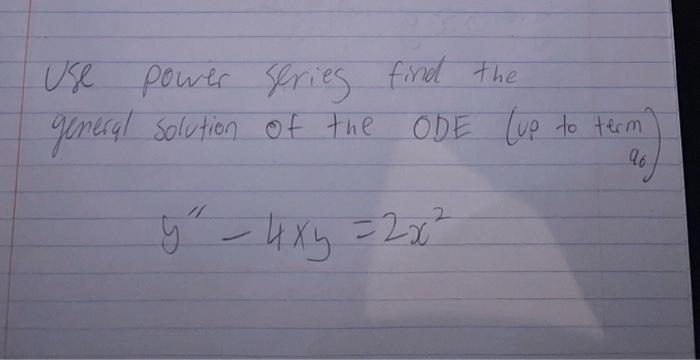 Use power series find the
general solution of the ODE (up to term
a6)
y'' - 4xy = 2x²